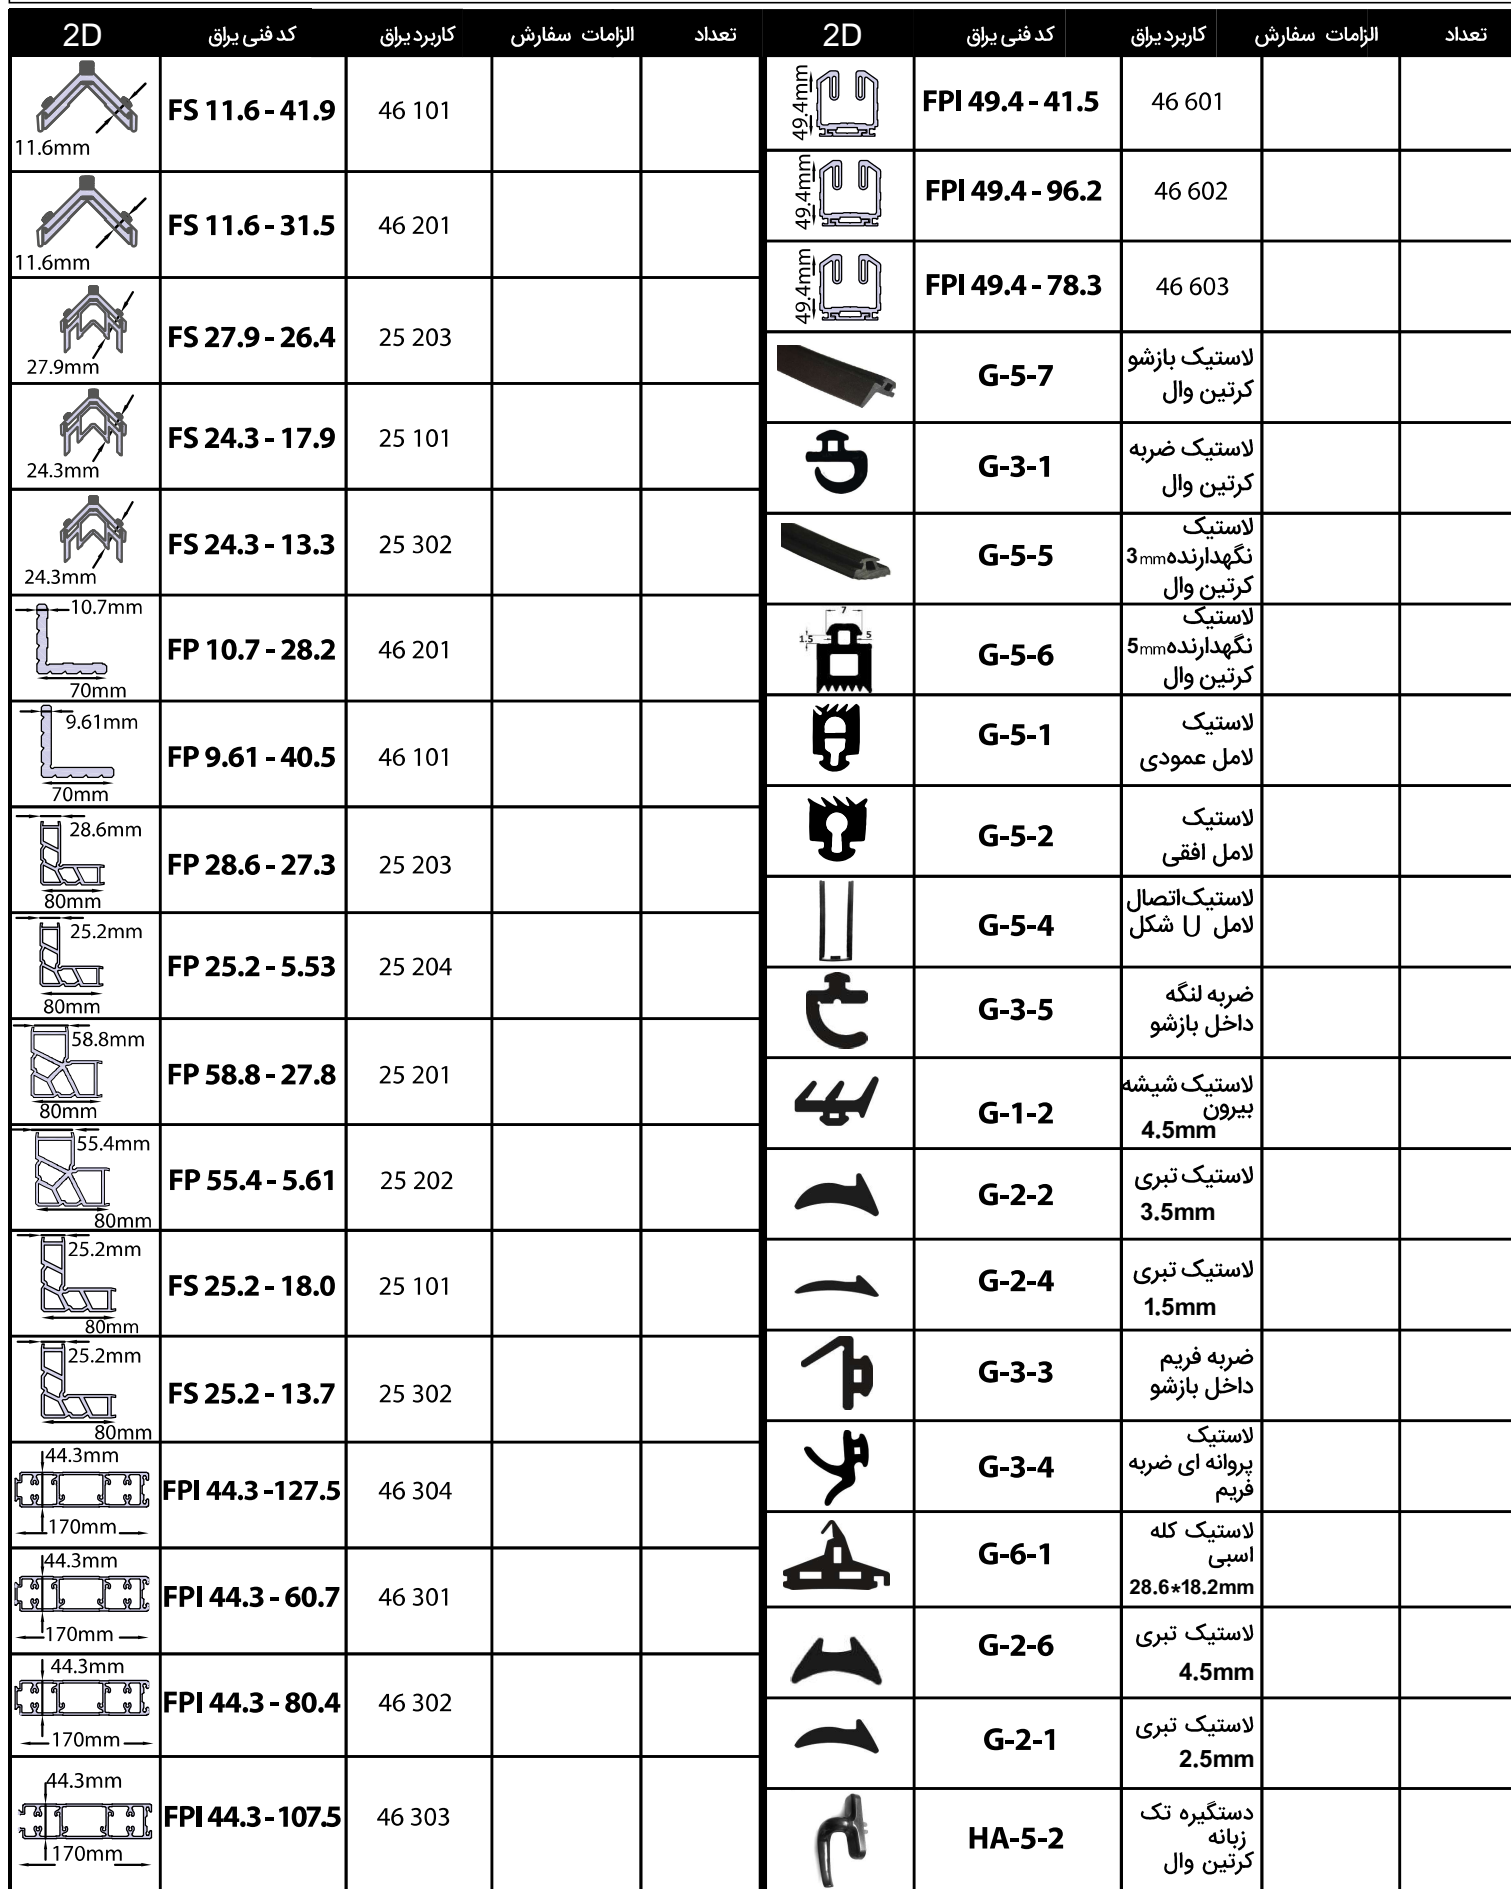 2D کد فنی یراق کاربرد یراق الزامات سفارش تعداد
11.6mm FS 11.6 - 41.9 46 101
11.6mm FS 11.6 - 31.5 46 201
27.9mm FS 27.9 - 26.4 25 203
24.3mm FS 24.3 - 17.9 25 101
24.3mm FS 24.3 - 13.3 25 302
10.7mm
FP 10.7 - 28.2 46 201
70mm
9.61mm
FP 9.61 - 40.5 46 101
70mm
28.6mm
FP 28.6 - 27.3 25 203
80mm
25.2mm
FP 25.2 - 5.53 25 204
80mm
58.8mm
FP 58.8 - 27.8 25 201
80mm
55.4mm
FP 55.4 - 5.61 25 202
80mm
25.2mm
FS 25.2 - 18.0 25 101
80mm
25.2mm
FS 25.2 - 13.7 25 302
80mm
44.3mm
FPI 44.3 -127.5 46 304
170mm
44.3mm
FPI 44.3 - 60.7 46 301
170mm
44.3mm
FPI 44.3 - 80.4 46 302
170mm
44.3mm
FPI 44.3 - 107.5 46 303
170mm
2D کد فنی یراق کاربرد یراق الزامات سفارش تعداد
49.4mm FPI 49.4 - 41.5 46 601
49.4mm FPI 49.4 - 96.2 46 602
49.4mm FPI 49.4 - 78.3 46 603
G-5-7
لاستیک بازشو
کرتین وال
G-3-1
لاستیک ضربه
کرتین وال
G-5-5
لاستیک
نگهدارنده 3mm
کرتین وال
7
1.5 5
G-5-6
لاستیک
نگهدارنده 5mm
کرتین وال
G-5-1
لاستیک
لامل عمودی
G-5-2
لاستیک
لامل افقی
G-5-4
لاستیک اتصال
لامل U شکل
G-3-5
ضربه لنگه
داخل بازشو
G-1-2
لاستیک شیشه
بیرون
4.5mm
G-2-2
لاستیک تبری
3.5mm
G-2-4
لاستیک تبری
1.5mm
G-3-3
ضربه فریم
داخل بازشو
G-3-4
لاستیک
پروانه ای ضربه
فریم
G-6-1
لاستیک کله
اسبی
28.6*18.2mm
G-2-6
لاستیک تبری
4.5mm
G-2-1
لاستیک تبری
2.5mm
HA-5-2
دستگیره تک
زبانه
کرتین وال